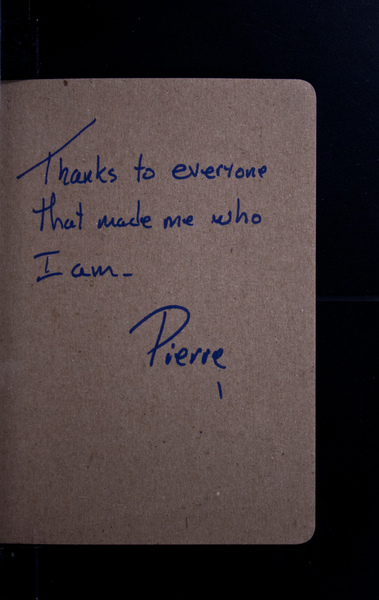 Thanks to everyone
that made me who
I am-
Pierre